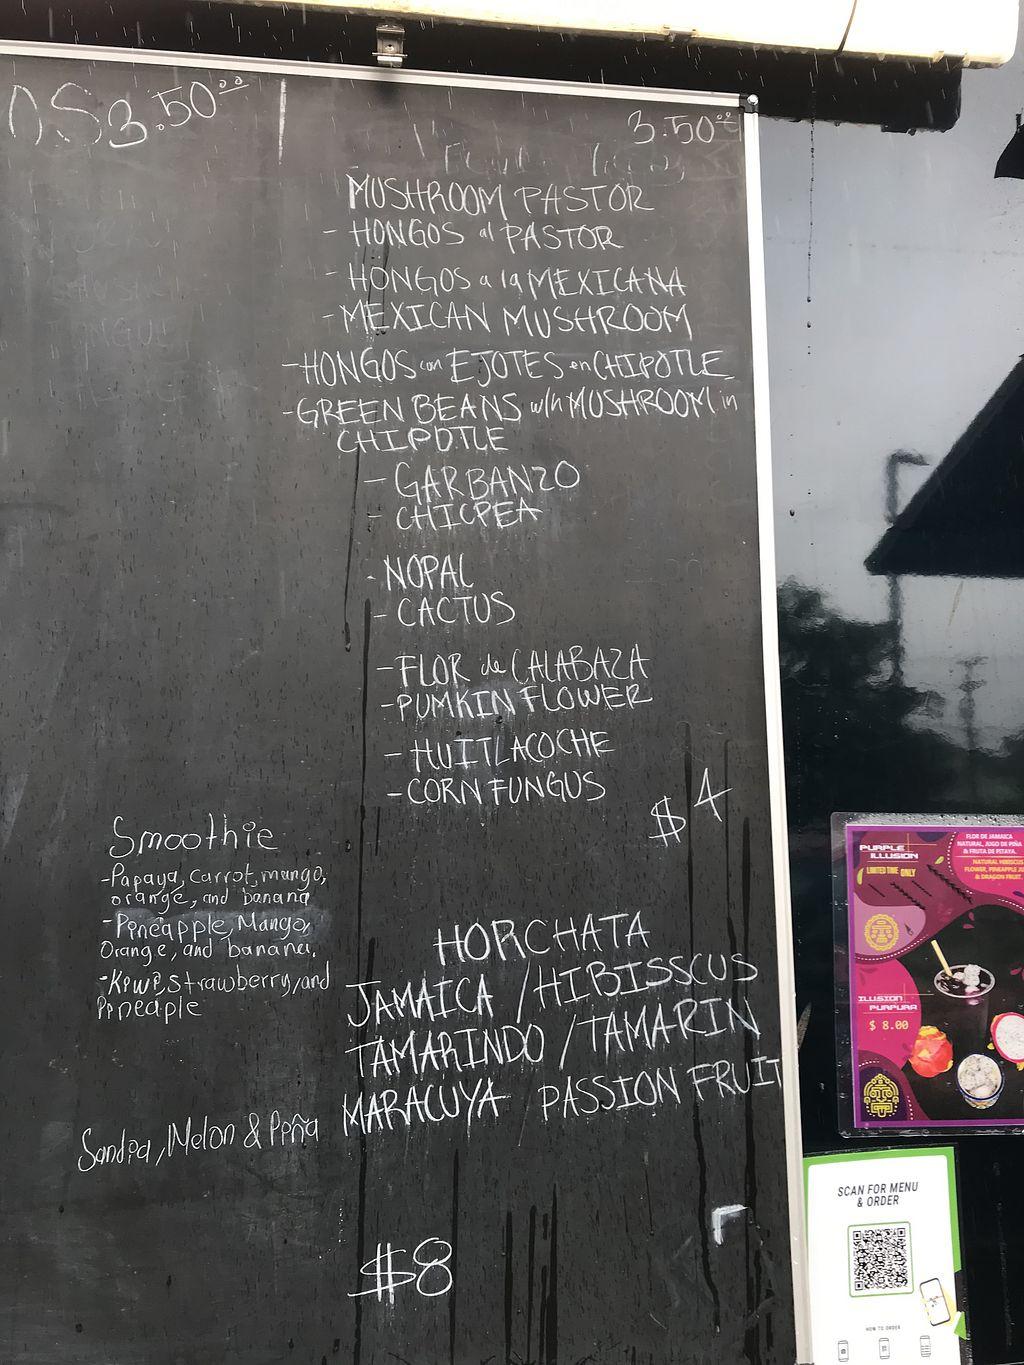 3.50°°
3.50°°
MUSHROOM PASTOR
- HONGOS al PASTOR
- HONGOS a la MEXICANA
- MEXICAN MUSHROOM
- HONGOS con EJOTES en CHIPOTLE
- GREEN BEANS w/n MUSHROOM in
CHIPOTLE
- GARBANZO
- CHICPEA
- NOPAL
- CACTUS
- FLOR de CALABAZA
- PUMKIN FLOWER
- HUITLACOCHE
- CORN FUNGUS
$4
Smoothie
- Papaya, carrot, mango,
orange, and banana
- Pineapple, Mango,
Orange, and banana.
- Kiwi, strawberry, and
Pineaple
HORCHATA
JAMAICA / HIBISSCUS
TAMARINDO / TAMARIN
MARACUYA PASSION FRUIT
Sandia, Melon & Piña
$8
PURPLE
ILLUSION
LIMITED TIME ONLY
FLOR DE JAMAICA
NATURAL, JUGO DE PIÑA
& FRUTA DE PITAYA.
NATURAL HIBISCUS
FLOWER, PINEAPPLE JU
& DRAGON FRUIT.
ILUSION
PURPURA
$ 8.00
SCAN FOR MENU
& ORDER
HOW TO ORDER